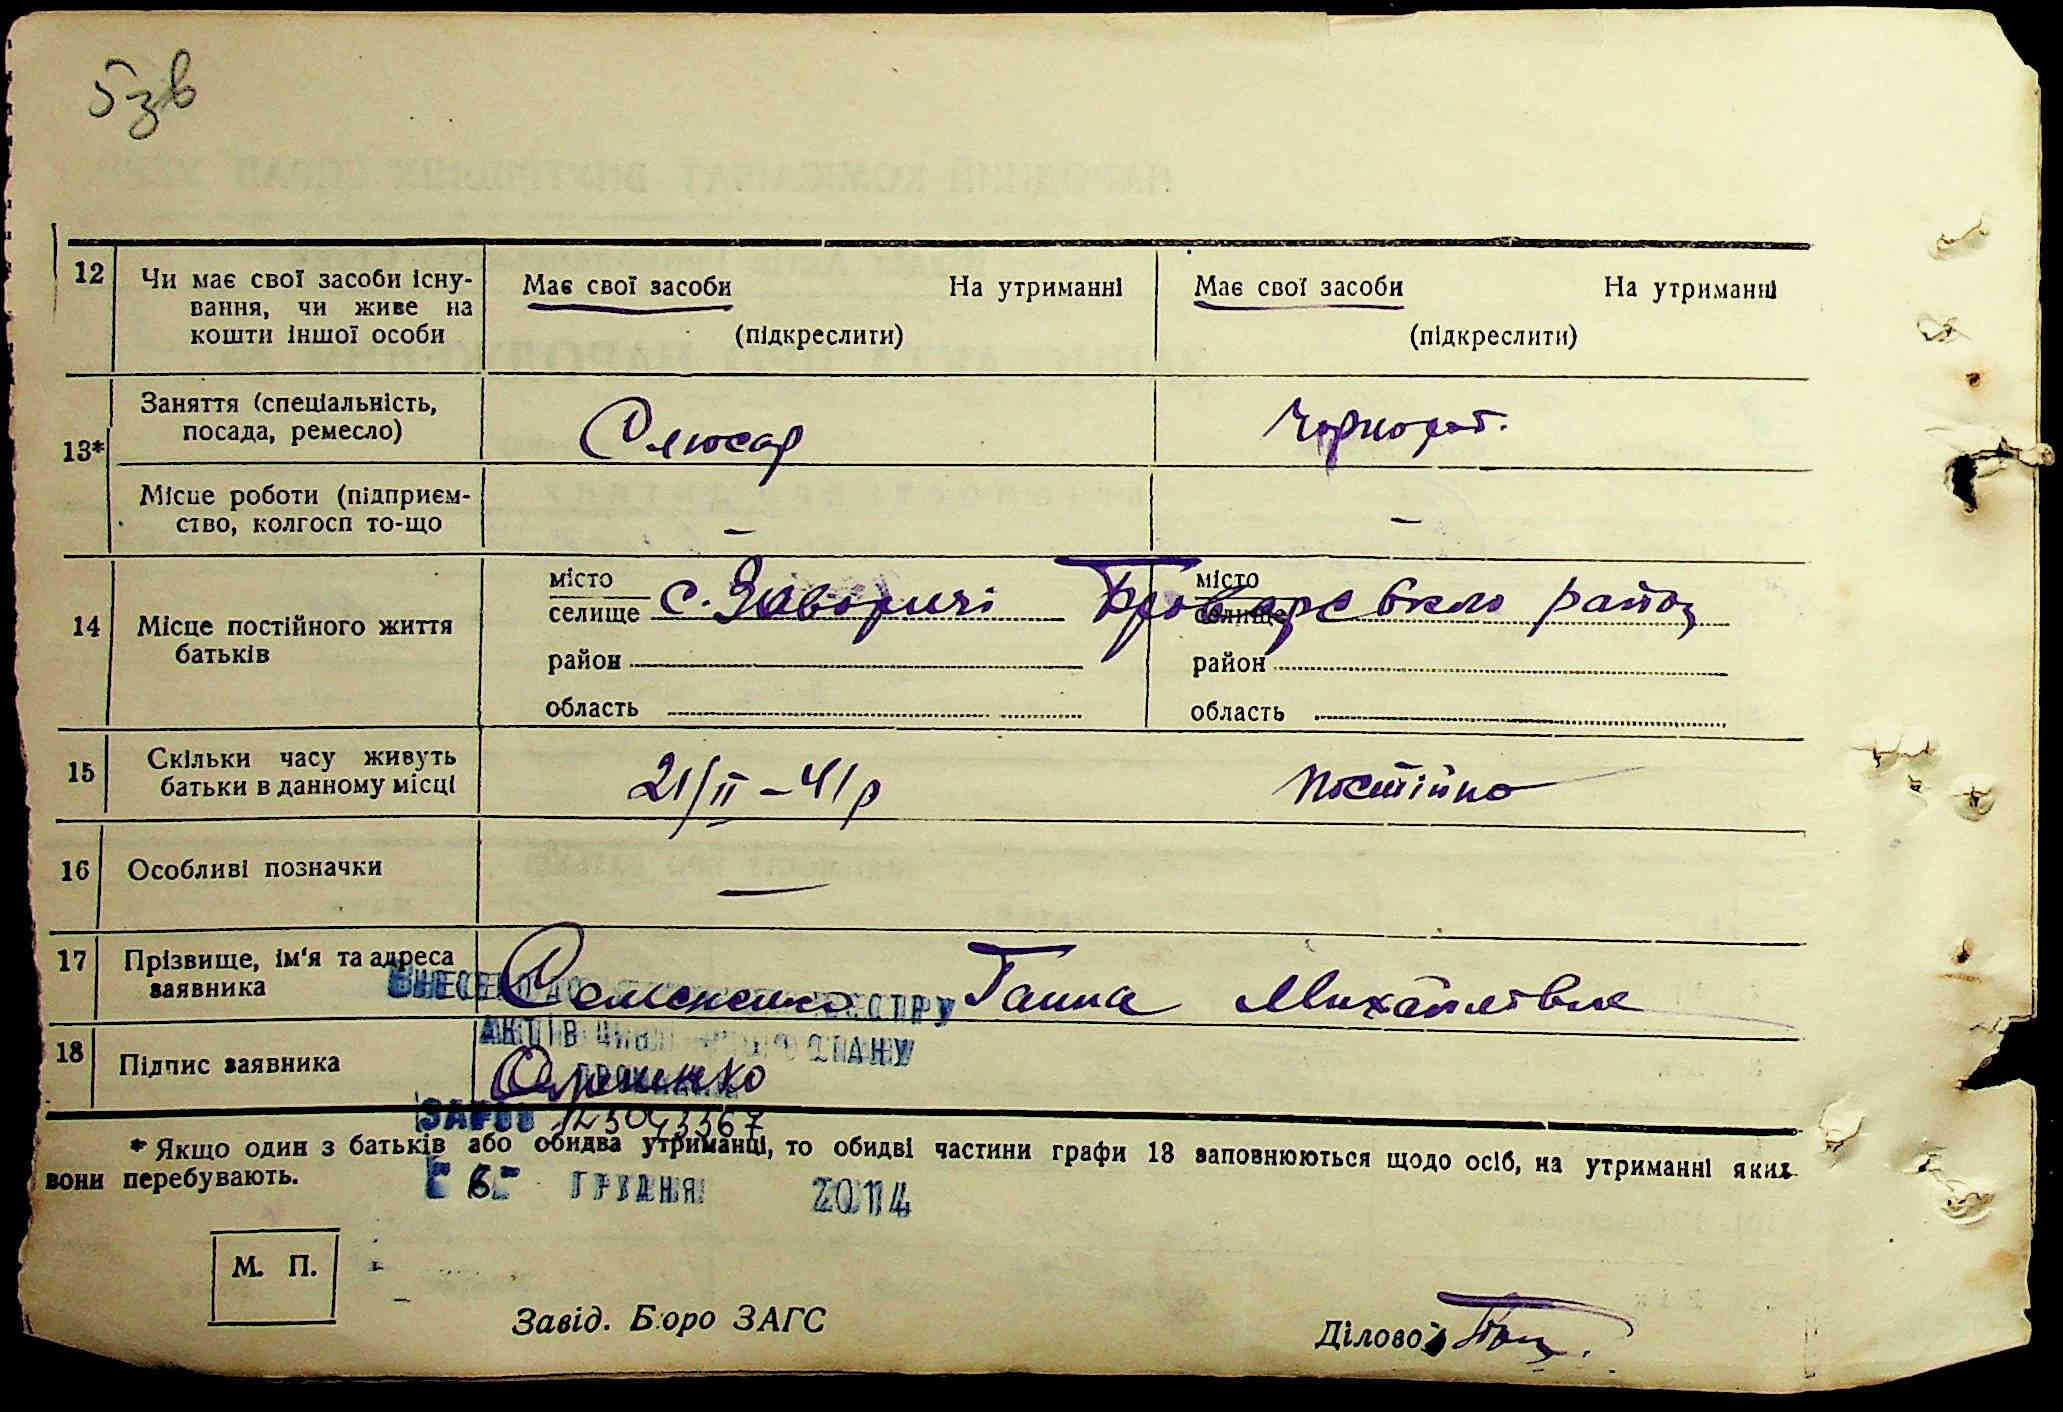 5зв
12 Чи має свої засоби існу-
вання, чи живе на
кошти іншої особи
Має свої засоби На утриманні
(підкреслити)
Має свої засоби На утриманні
(підкреслити)
13* Заняття (спеціальність,
посада, ремесло)
Слюсар
Чорнороб.
Місце роботи (підприєм-
ство, колгосп то-що
–
–
14 Місце постійного життя
батьків
місто
селище с. Заворичі Броварського район
район
область
місто
селище
район
область
15 Скільки часу живуть
батьки в данному місці
21/II – 41р
постійно
16 Особливі позначки
—
17 Прізвище, ім'я та адреса
заявника
Семененко Ганна Михайлівна
ВНЕСЕНО ДО РЕЄСТРУ
АКТІВ ЦИВІЛЬНОГО СТАНУ
ГРОМАДЯН
18 Підпис заявника
ЗА № 00123043367
* Якщо один з батьків або обидва утриманці, то обидві частини графи 13 заповнюються щодо осіб, на утриманні яких
вони перебувають.
6 ГРУДНЯ 2014
М. П.
Завід. Бюро ЗАГС
Діловод